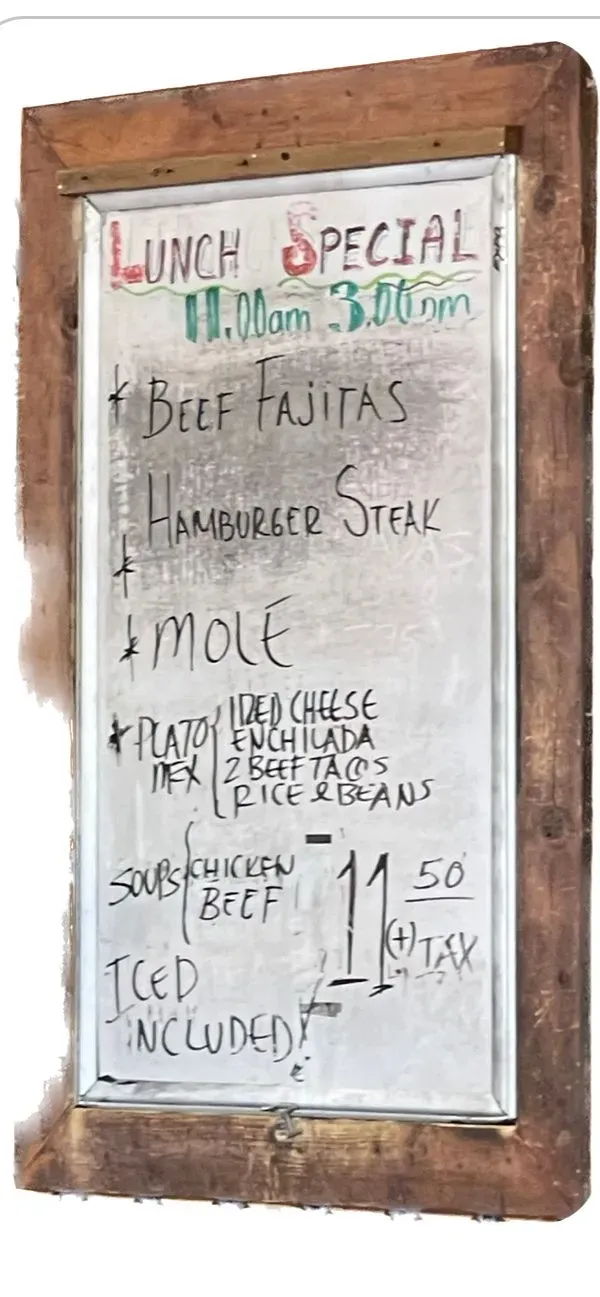 LUNCH SPECIAL
11.00am 3.00pm
* BEEF FAJITAS
* HAMBURGER STEAK
* MOLÉ
* PLATO MEX { 1 RED CHEESE
ENCHILADA
2 BEEF TACOS
RICE & BEANS
SOUPS { CHICKEN
BEEF
11 50
(+) TAX
ICED
INCLUDED